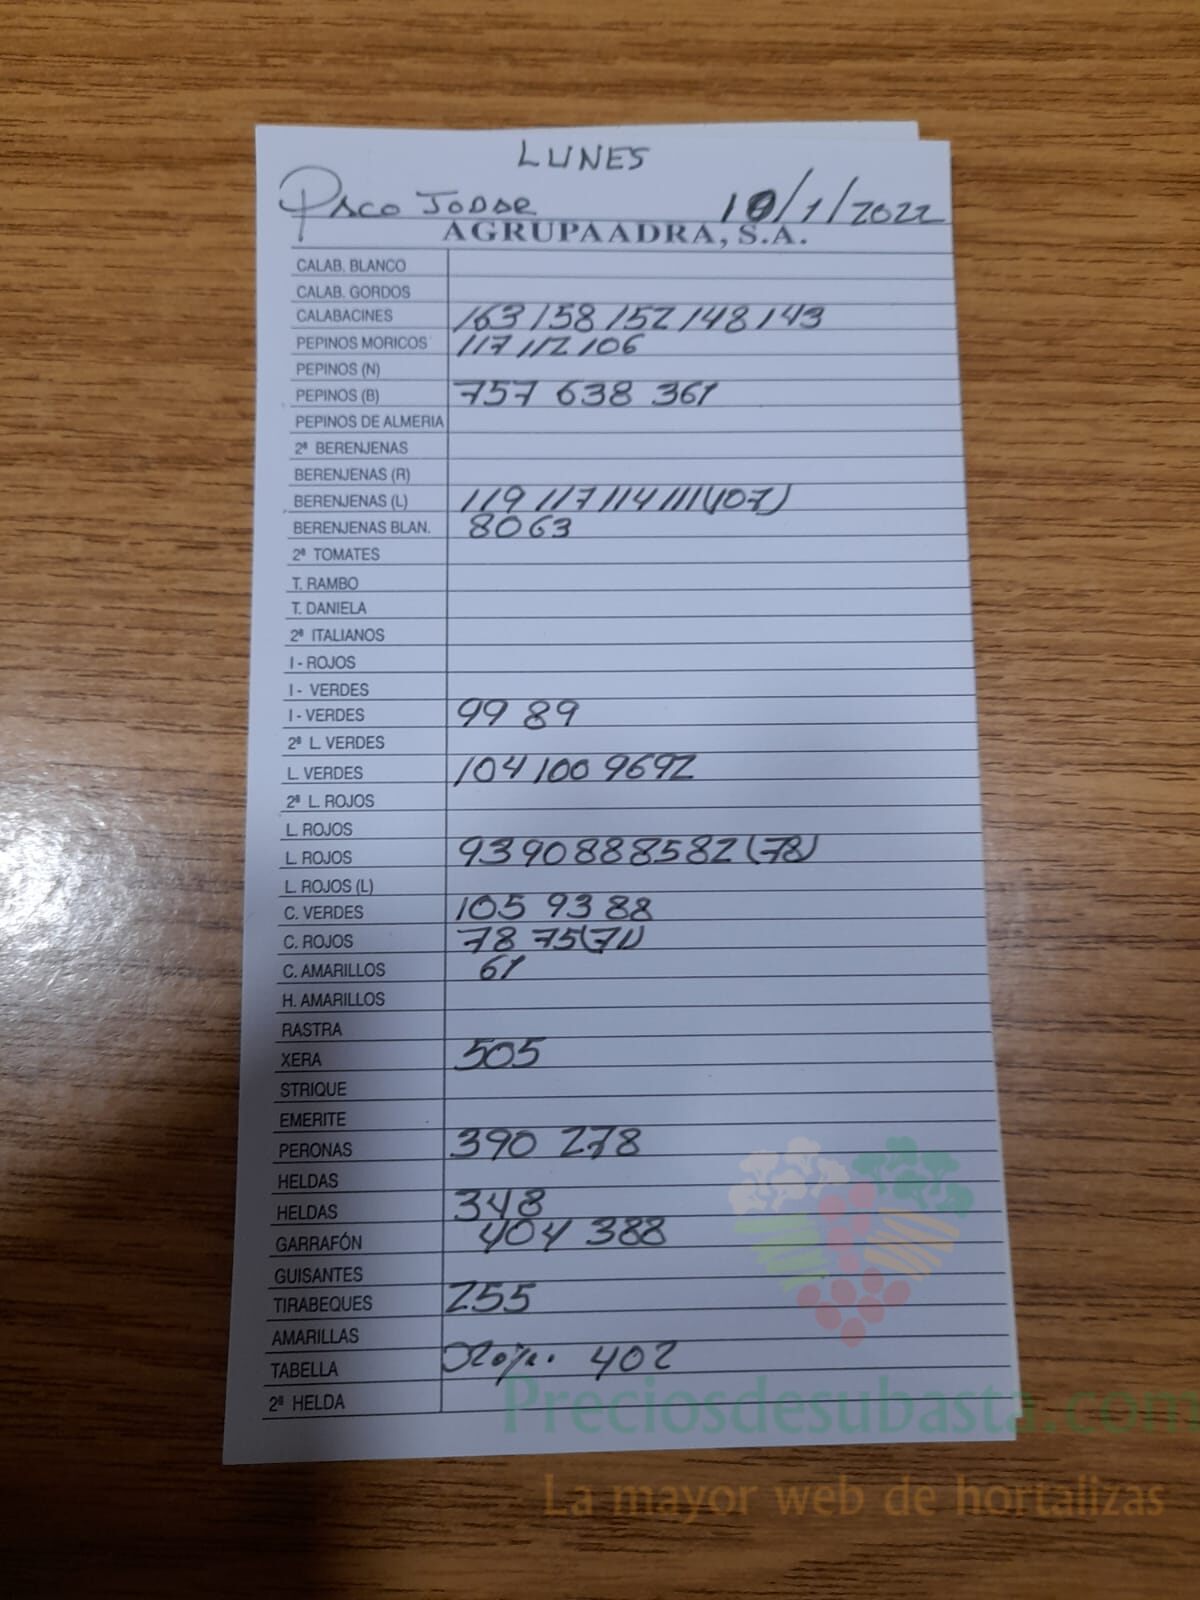 LUNES
Paco Jodar 10/1/2022
AGRUPAADRA, S.A.
CALAB. BLANCO
CALAB. GORDOS
CALABACINES 163 158 152 148 143
PEPINOS MORICOS 117 112 106
PEPINOS (N)
PEPINOS (B) 757 638 361
PEPINOS DE ALMERIA
2ª BERENJENAS
BERENJENAS (R)
BERENJENAS (L) 119 117 114 111 (107)
BERENJENAS BLAN. 80 63
2ª TOMATES
T. RAMBO
T. DANIELA
2ª ITALIANOS
I - ROJOS
I - VERDES
I - VERDES 99 89
2ª L. VERDES
L. VERDES 104 100 96 92
2ª L. ROJOS
L. ROJOS
L. ROJOS 93 90 88 85 82 (78)
L. ROJOS (L)
C. VERDES 105 93 88
C. ROJOS 78 75 (71)
C. AMARILLOS 61
H. AMARILLOS
RASTRA
XERA 505
STRIQUE
EMERITE
PERONAS 390 278
HELDAS
HELDAS 348
GARRAFÓN 404 388
GUISANTES
TIRABEQUES 255
AMARILLAS
TABELLA 402
2ª HELDA
Preciosdesubasta.com
La mayor web de hortalizas